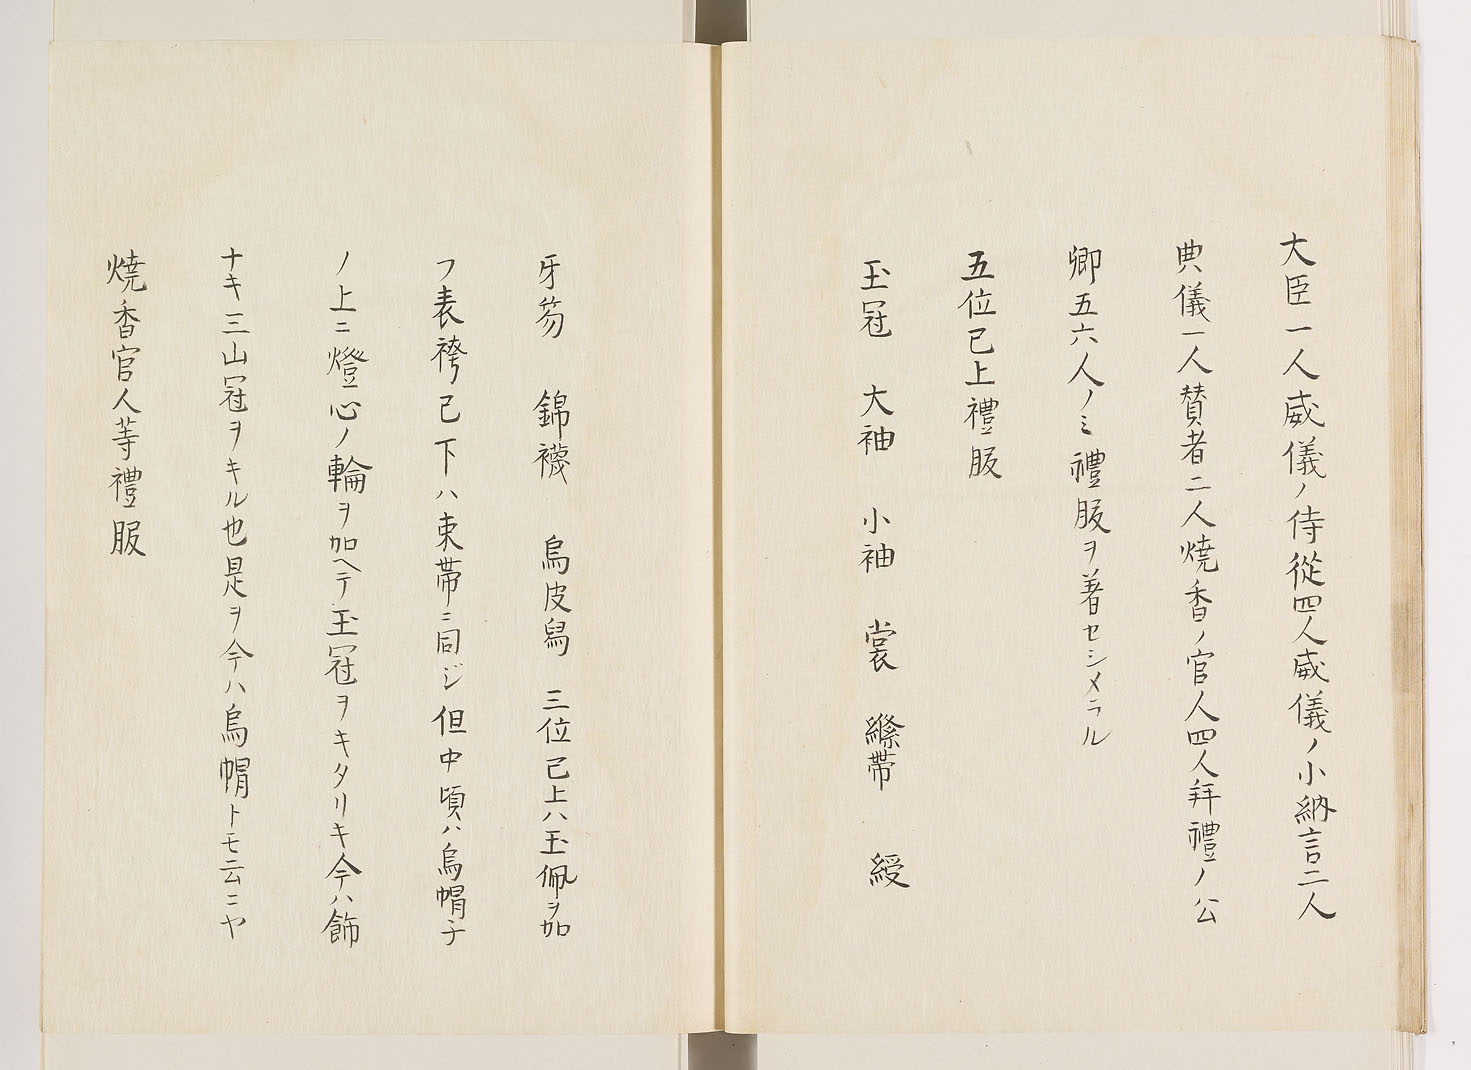 大臣一人威儀ノ侍從四人威儀ノ小納言二人
典儀一人賛者二人燒香ノ官人四人拜禮ノ公
卿五六人ノミ禮服ヲ著セシメラル
五位已上禮服
玉冠　大袖　小袖　裳　絛帶　綬
牙笏　錦襪　烏皮舄　三位已上ハ玉佩ヲ加
フ表袴已下ハ束帶ニ同ジ但中頃ハ烏帽子
ノ上ニ燈心ノ輪ヲ加ヘテ玉冠ヲキタリキ今ハ飾
ナキ三山冠ヲキル也是ヲ今ハ烏帽トモ云ニヤ
燒香官人等禮服